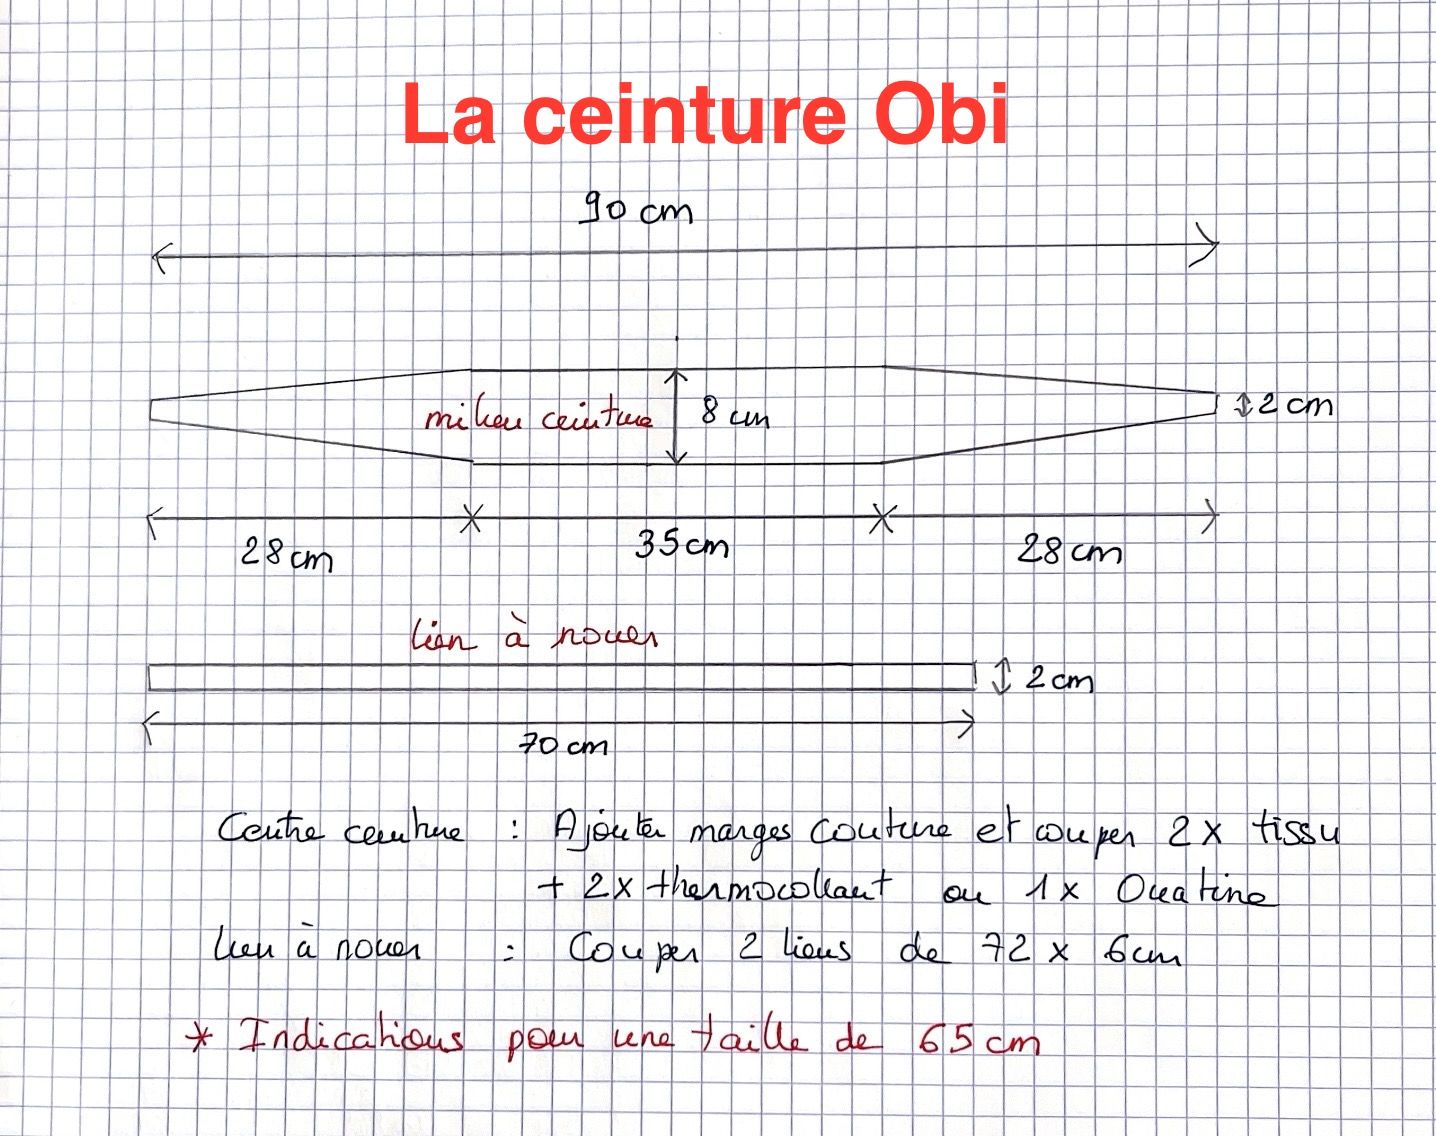 La ceinture Obi
90 cm
milieu ceinture 8 cm
2 cm
28 cm 35 cm 28 cm
lien à nouer
2 cm
70 cm
Centre ceinture : Ajouter marges couture et couper 2 x tissu
+ 2 x thermocollant ou 1 x Ouatine
lien à nouer : Couper 2 liens de 72 x 6 cm
* Indications pour une taille de 65 cm